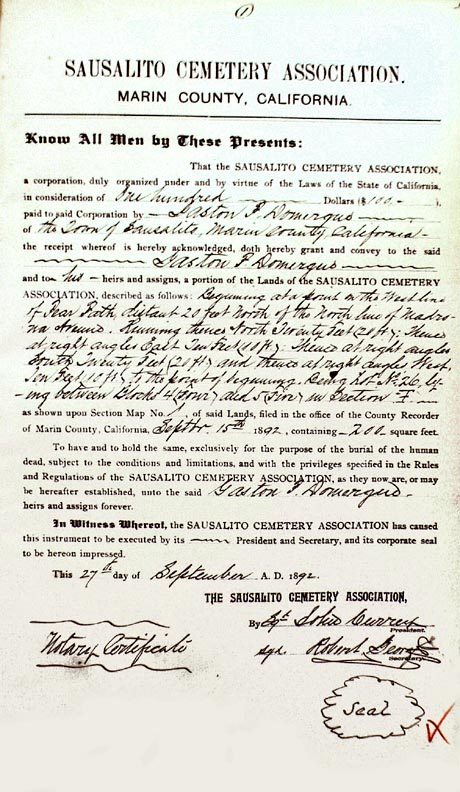 1
SAUSALITO CEMETERY ASSOCIATION.
MARIN COUNTY, CALIFORNIA.
Know All Men by These Presents:
That the SAUSALITO CEMETERY ASSOCIATION,
a corporation, duly organized under and by virtue of the Laws of the State of California,
in consideration of One hundred Dollars ($100.- ),
paid to said Corporation by Gaston F. Domergue
of the Town of Sausalito, Marin County, California
the receipt whereof is hereby acknowledged, doth hereby grant and convey to the said
Gaston F Domergue
and to his heirs and assigns, a portion of the Lands of the SAUSALITO CEMETERY
ASSOCIATION, described as follows: Beginning at a point in the West line
of Path, distant 20 feet North of the North line of Madro-
na Around. Running thence North Twenty Feet (20 ft); Thence
at right angles East Ten Feet (10 ft); Thence at right angles
South Twenty Feet (20 ft) and thence at right angles West
Ten Feet (10 ft) to the point of beginning. Being Lot No. 26, ly-
ing between Blocks 4 (four) and 5 (Five) in Section
as shown upon Section Map No. 1, of said Lands, filed in the office of the County Recorder
of Marin County, California, Septbr. 15th 1892, containing -200- square feet.
To have and to hold the same, exclusively for the purpose of the burial of the human
dead, subject to the conditions and limitations, and with the privileges specified in the Rules
and Regulations of the SAUSALITO CEMETERY ASSOCIATION, as they now are, or may
be hereafter established, unto the said Gaston F. Domergue
heirs and assigns forever.
In Witness Whereof, the SAUSALITO CEMETERY ASSOCIATION has caused
this instrument to be executed by its President and Secretary, and its corporate seal
to be hereon impressed.
This 27th day of September A. D. 1892.
THE SAUSALITO CEMETERY ASSOCIATION,
By Sgd. John Currey
President.
Notary Certificate
sgd. Robert George
Secretary.
Seal